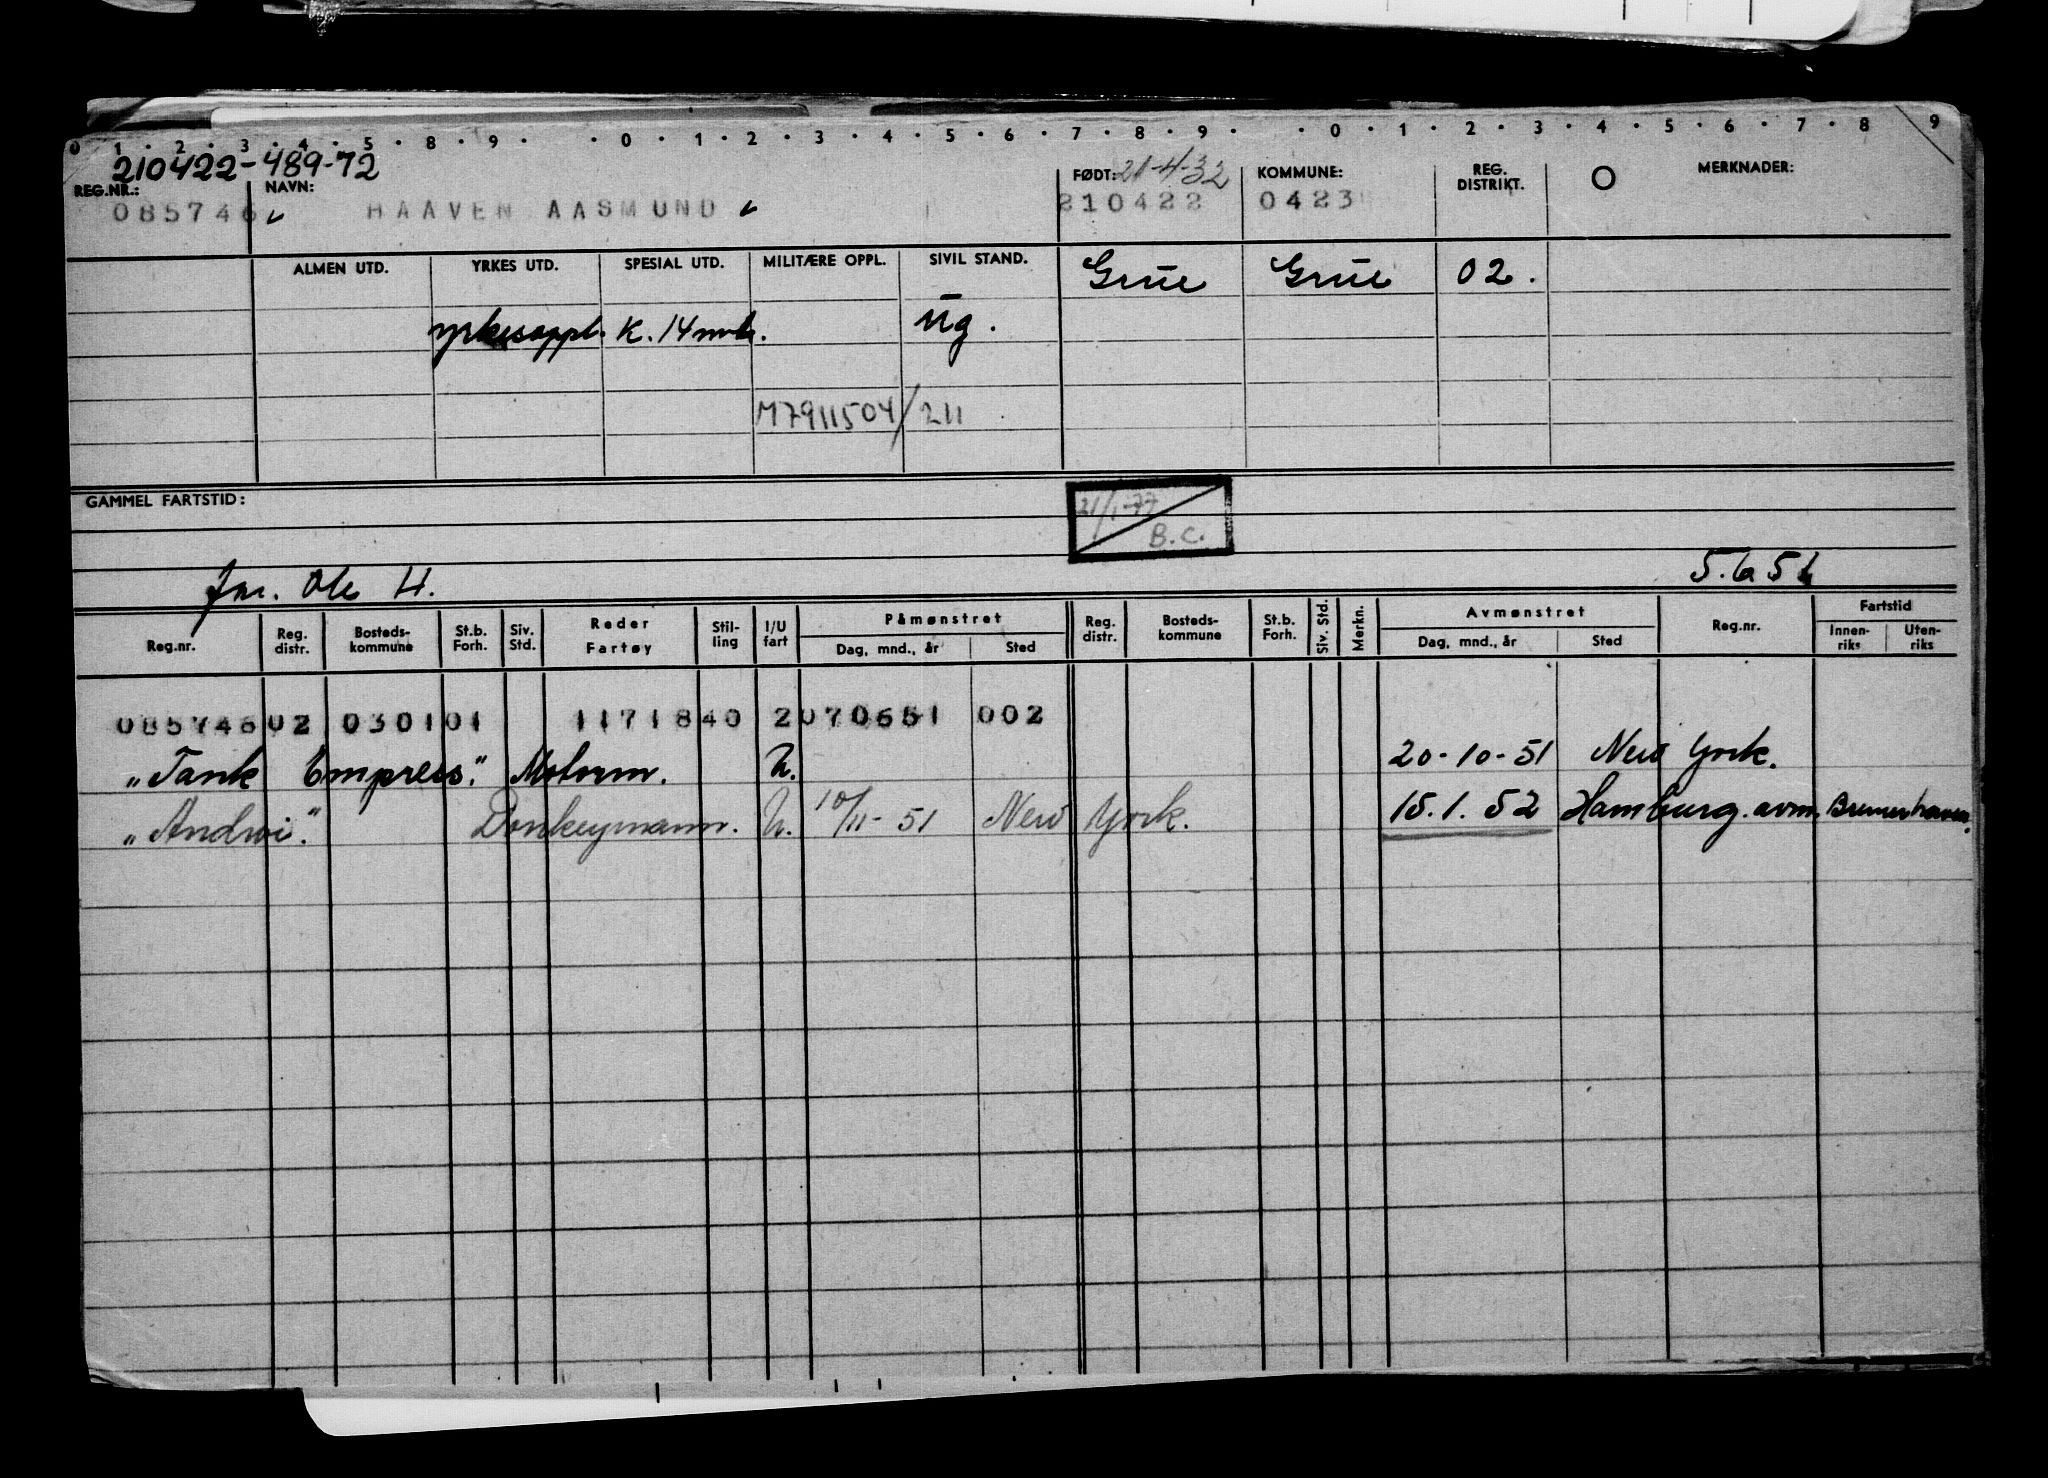 0 . 1 . 2 . 3 . 4 . 5 . 8 . 9 . . 0 . 1 . 2 . 3 . 4 . 5 . 6 . 7 . 8 . 9 . . 0 . 1 . 2 . 3 . 4 . 5 . 6 . 7 . 8 9
210422-489-72
REG.NR.: NAVN: FØDT: 21-4-32 KOMMUNE: REG. DISTRIKT. MERKNADER:
085746 HAAVEN AASMUND 210422 0423
ALMEN UTD. YRKES UTD. SPESIAL UTD. MILITÆRE OPPL. SIVIL STAND. Grue Grue 02.
yrkesoppl. K. 14 mnd. Ug.
M7911504/211
GAMMEL FARTSTID:
21/1-77
B.C.
Far. Ole H. 5.6 51
Reg.nr. Reg. distr. Bosteds-kommune St.b. Forh. Siv. Std. Reder Fartøy Stil-ling I/U fart Påmønstret Dag, mnd., år Sted Reg. distr. Bosteds-kommune St.b. Forh. Siv. Std. Merkn. Avmønstret Dag, mnd., år Sted Reg.nr. Fartstid Innen-riks Uten-riks
085746 02 0301 01 11718 40 2 070651 002
"Tank Empress". Motorm. U. 20-10-51 New York.
"Andwi". Donkeymann. U. 10/11-51 New York. 15.1.52 Hamburg. avm. Bremerhaven.